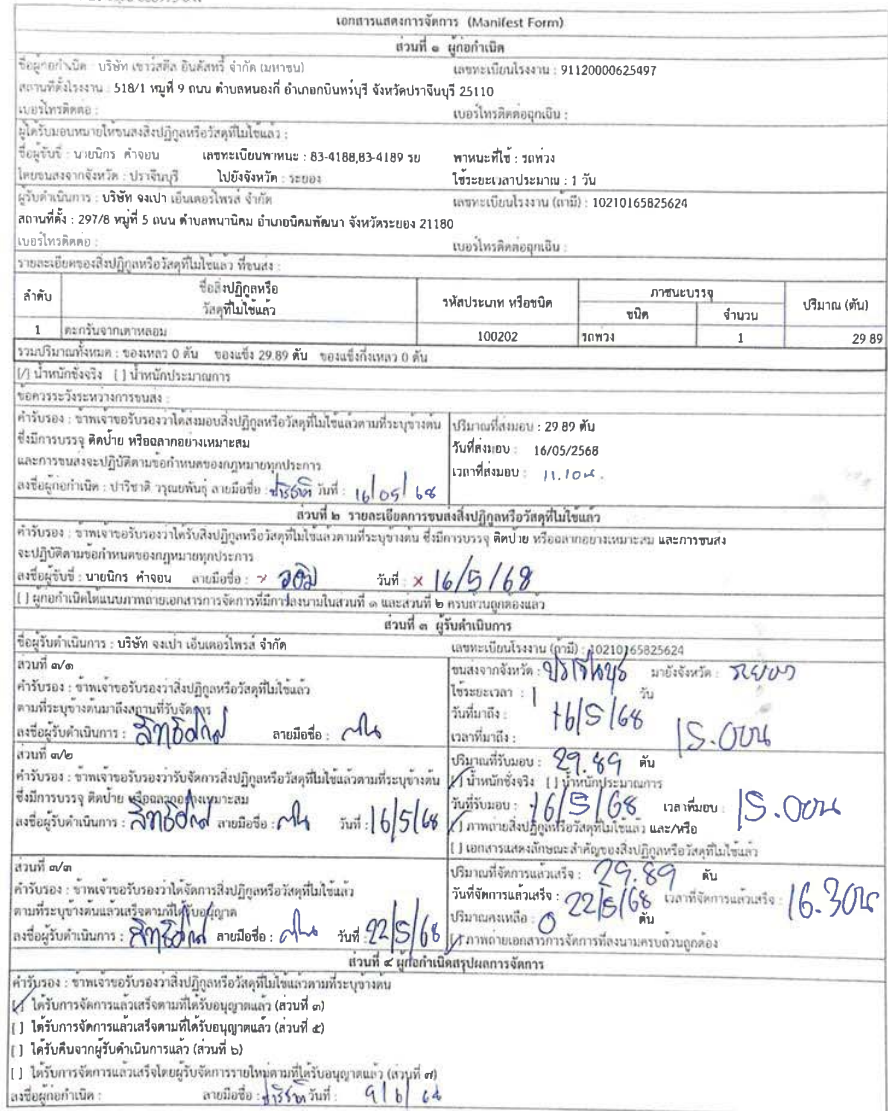 เอกสารแสดงการจัดการ (Manifest Form)
ส่วนที่ ๑ ผู้ก่อกำเนิด
ชื่อผู้ก่อกำเนิด : บริษัท เชาว์สตีล อินดัสทรี้ จำกัด (มหาชน) เลขทะเบียนโรงงาน : 91120000625497
สถานที่ตั้งโรงงาน : 518/1 หมู่ที่ 9 ถนน ตำบลหนองกี่ อำเภอกบินทร์บุรี จังหวัดปราจีนบุรี 25110
เบอร์โทรติดต่อ : เบอร์โทรติดต่อฉุกเฉิน :
ผู้ได้รับมอบหมายให้ขนส่งสิ่งปฏิกูลหรือวัสดุที่ไม่ใช้แล้ว :
ชื่อผู้ขับขี่ : นายนิกร คำจอน เลขทะเบียนพาหนะ : 83-4188,83-4189 รย พาหนะที่ใช้ : รถพ่วง
โดยขนส่งจากจังหวัด : ปราจีนบุรี ไปยังจังหวัด : ระยอง ใช้ระยะเวลาประมาณ : 1 วัน
ผู้รับดำเนินการ : บริษัท จงเปา เอ็นเตอร์ไพรส์ จำกัด เลขทะเบียนโรงงาน (ถ้ามี) : 10210165825624
สถานที่ตั้ง : 297/8 หมู่ที่ 5 ถนน ตำบลพนานิคม อำเภอนิคมพัฒนา จังหวัดระยอง 21180
เบอร์โทรติดต่อ : เบอร์โทรติดต่อฉุกเฉิน :
รายละเอียดของสิ่งปฏิกูลหรือวัสดุที่ไม่ใช้แล้ว ที่ขนส่ง :
ลำดับ ชื่อสิ่งปฏิกูลหรือวัสดุที่ไม่ใช้แล้ว รหัสประเภท หรือชนิด ภาชนะบรรจุ ชนิด จำนวน ปริมาณ (ตัน)
1 ตะกรันจากเตาหลอม 100202 รถพ่วง 1 29.89
รวมปริมาณทั้งหมด : ของเหลว 0 ตัน ของแข็ง 29.89 ตัน ของแข็งกึ่งเหลว 0 ตัน
[/] น้ำหนักชั่งจริง [ ] น้ำหนักประมาณการ
ข้อควรระวังระหว่างการขนส่ง :
คำรับรอง : ข้าพเจ้าขอรับรองว่าได้ส่งมอบสิ่งปฏิกูลหรือวัสดุที่ไม่ใช้แล้วตามที่ระบุข้างต้น
ซึ่งมีการบรรจุ ติดป้าย หรือฉลากอย่างเหมาะสม
และการขนส่งจะปฏิบัติตามข้อกำหนดของกฎหมายทุกประการ
ลงชื่อผู้ก่อกำเนิด : ปาริชาติ วรุณยพันธุ์ ลายมือชื่อ : ปาริชาติ วันที่ : 16/05/68
ปริมาณที่ส่งมอบ : 29.89 ตัน
วันที่ส่งมอบ : 16/05/2568
เวลาที่ส่งมอบ : 11.10 น.
ส่วนที่ ๒ รายละเอียดการขนส่งสิ่งปฏิกูลหรือวัสดุที่ไม่ใช้แล้ว
คำรับรอง : ข้าพเจ้าขอรับรองว่าได้รับสิ่งปฏิกูลหรือวัสดุที่ไม่ใช้แล้วตามที่ระบุข้างต้น ซึ่งมีการบรรจุ ติดป้าย หรือฉลากอย่างเหมาะสม และการขนส่ง
จะปฏิบัติตามข้อกำหนดของกฎหมายทุกประการ
ลงชื่อผู้ขับขี่ : นายนิกร คำจอน ลายมือชื่อ : × วันที่ : × 16/5/68
[ ] ผู้ก่อกำเนิดได้แนบภาพถ่ายเอกสารการจัดการที่มีการลงนามในส่วนที่ ๑ และส่วนที่ ๒ ครบถ้วนถูกต้องแล้ว
ส่วนที่ ๓ ผู้รับดำเนินการ
ชื่อผู้รับดำเนินการ : บริษัท จงเปา เอ็นเตอร์ไพรส์ จำกัด เลขทะเบียนโรงงาน (ถ้ามี) : 10210165825624
ส่วนที่ ๓/๑
คำรับรอง : ข้าพเจ้าขอรับรองว่าสิ่งปฏิกูลหรือวัสดุที่ไม่ใช้แล้ว
ตามที่ระบุข้างต้นมาถึงสถานที่รับจัดการ
ลงชื่อผู้รับดำเนินการ : ลายมือชื่อ :
ขนส่งจากจังหวัด : ปราจีนบุรี มายังจังหวัด : ระยอง
ใช้ระยะเวลา : 1 วัน
วันที่มาถึง : 16/5/68
เวลาที่มาถึง : 15.00น
ส่วนที่ ๓/๒
คำรับรอง : ข้าพเจ้าขอรับรองว่ารับจัดการสิ่งปฏิกูลหรือวัสดุที่ไม่ใช้แล้วตามที่ระบุข้างต้น
ซึ่งมีการบรรจุ ติดป้าย หรือฉลากอย่างเหมาะสม
ลงชื่อผู้รับดำเนินการ : ลายมือชื่อ : วันที่ : 16/5/68
ปริมาณที่รับมอบ : 29.89 ตัน
[/] น้ำหนักชั่งจริง [ ] น้ำหนักประมาณการ
วันที่รับมอบ : 16/5/68 เวลาที่มอบ : 15.00น
[/] ภาพถ่ายสิ่งปฏิกูลหรือวัสดุที่ไม่ใช้แล้ว และ/หรือ
[ ] เอกสารแสดงลักษณะสำคัญของสิ่งปฏิกูลหรือวัสดุที่ไม่ใช้แล้ว
ส่วนที่ ๓/๓
คำรับรอง : ข้าพเจ้าขอรับรองว่าได้จัดการสิ่งปฏิกูลหรือวัสดุที่ไม่ใช้แล้ว
ตามที่ระบุข้างต้นแล้วเสร็จตามที่ได้รับอนุญาต
ลงชื่อผู้รับดำเนินการ : ลายมือชื่อ : วันที่ : 22/5/68
ปริมาณที่จัดการแล้วเสร็จ : 29.89 ตัน
วันที่จัดการแล้วเสร็จ : 22/5/68 เวลาที่จัดการแล้วเสร็จ : 16.30น
ปริมาณคงเหลือ : 0 ตัน
[/] ภาพถ่ายเอกสารการจัดการที่ลงนามครบถ้วนถูกต้อง
ส่วนที่ ๔ ผู้ก่อกำเนิดสรุปผลการจัดการ
คำรับรอง : ข้าพเจ้าขอรับรองว่าสิ่งปฏิกูลหรือวัสดุที่ไม่ใช้แล้วตามที่ระบุข้างต้น
[/] ได้รับการจัดการแล้วเสร็จตามที่ได้รับอนุญาตแล้ว (ส่วนที่ ๓)
[ ] ได้รับการจัดการแล้วเสร็จตามที่ได้รับอนุญาตแล้ว (ส่วนที่ ๕)
[ ] ได้รับคืนจากผู้รับดำเนินการแล้ว (ส่วนที่ ๖)
[ ] ได้รับการจัดการแล้วเสร็จโดยผู้รับจัดการรายใหม่ตามที่ได้รับอนุญาตแล้ว (ส่วนที่ ๗)
ลงชื่อผู้ก่อกำเนิด : ลายมือชื่อ : ปาริชาติ วันที่ : 9/6/68